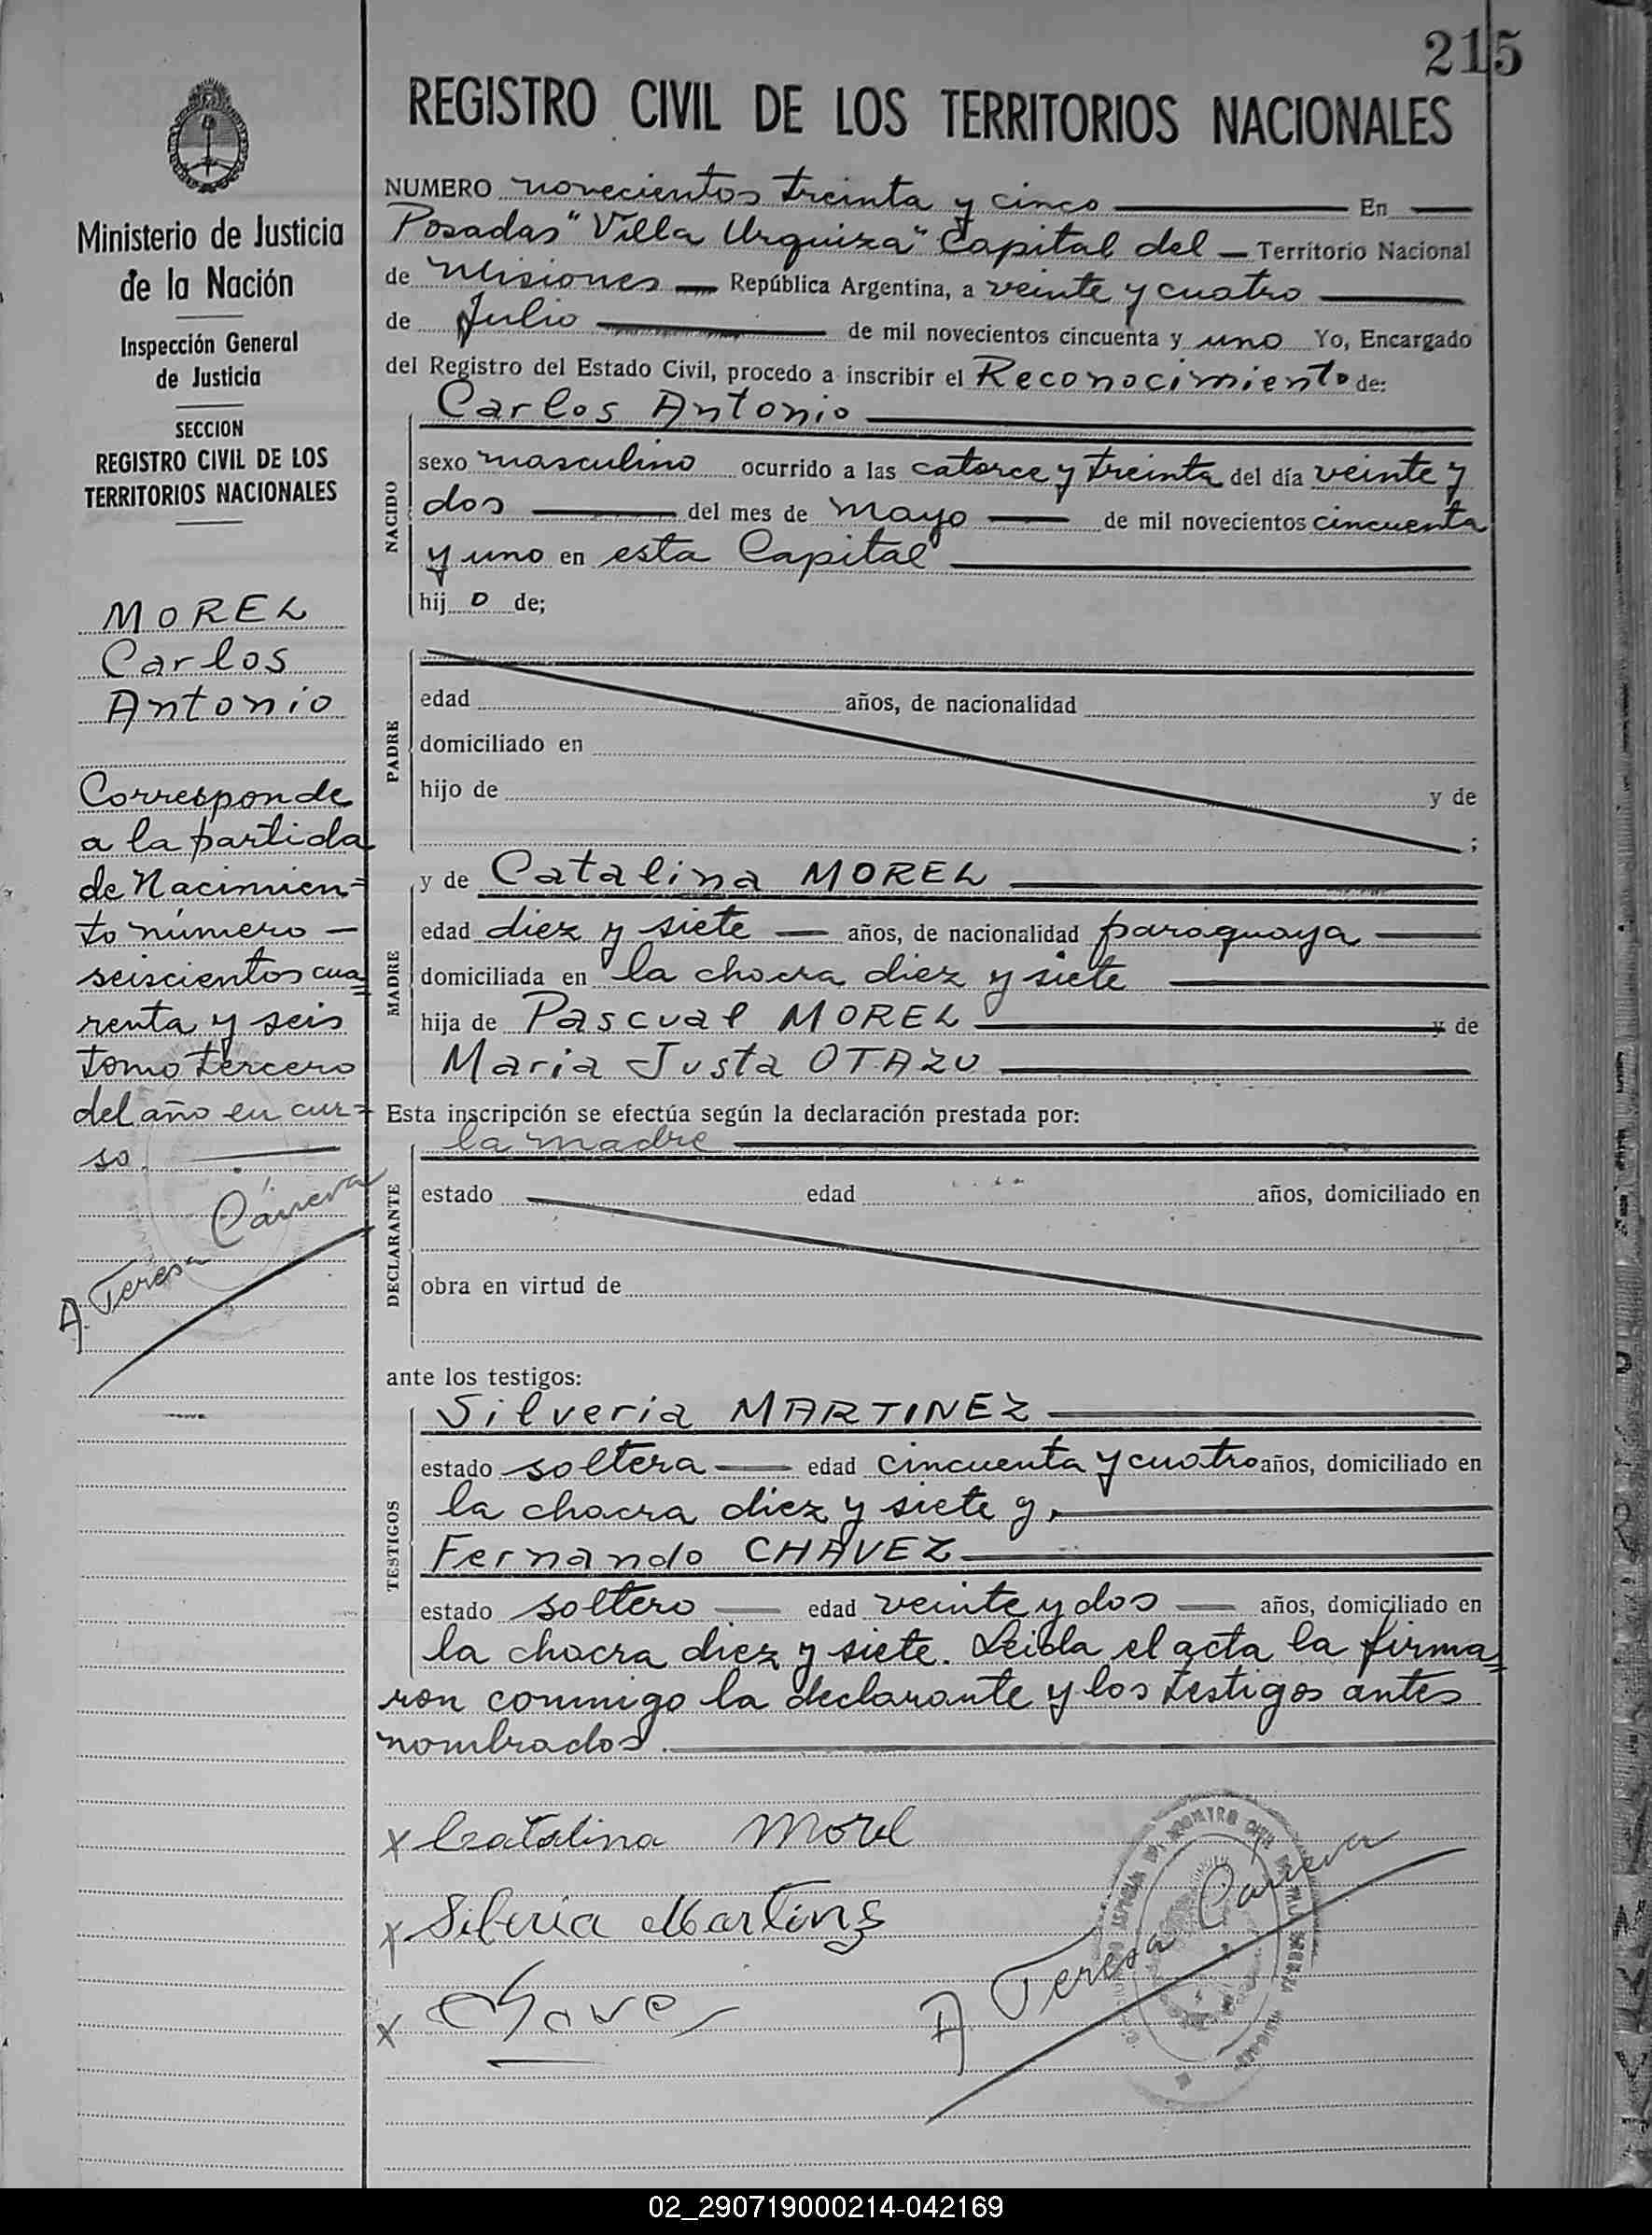 215
REGISTRO CIVIL DE LOS TERRITORIOS NACIONALES
Ministerio de Justicia
de la Nación
Inspección General
de Justicia
SECCION
REGISTRO CIVIL DE LOS
TERRITORIOS NACIONALES
MOREL
Carlos
Antonio
Corresponde
a la partida
de Nacimien=
to número —
seiscientos cua=
renta y seis
tomo tercero
del año en cur=
so.
A. Teresa Cáneva
NUMERO novecientos treinta y cinco — En —
Posadas "Villa Urquiza" Capital del — Territorio Nacional
de Misiones — República Argentina, a veinte y cuatro —
de Julio — de mil novecientos cincuenta y uno Yo, Encargado
del Registro del Estado Civil, procedo a inscribir el Reconocimiento de:
NACIDO
Carlos Antonio
sexo masculino ocurrido a las catorce y treinta del día veinte y
dos — del mes de mayo — de mil novecientos cincuenta
y uno en esta Capital
hij o de;
PADRE
edad años, de nacionalidad
domiciliado en
hijo de y de
;
MADRE
y de Catalina MOREL
edad diez y siete — años, de nacionalidad paraguaya —
domiciliada en la chacra diez y siete
hija de Pascual MOREL y de
Maria Justa OTAZU
Esta inscripción se efectúa según la declaración prestada por:
DECLARANTE
la madre
estado edad años, domiciliado en
obra en virtud de
ante los testigos:
TESTIGOS
Silveria MARTINEZ
estado soltera — edad cincuenta y cuatro años, domiciliado en
la chacra diez y siete y.
Fernando CHAVEZ
estado soltero — edad veinte y dos — años, domiciliado en
la chacra diez y siete. Leida el acta la firma=
ron conmigo la declarante y los testigos antes
nombrados.
x Catalina Morel
x Silveria Martinez
x Chavez
A Teresa Cáneva
02_290719000214-042169